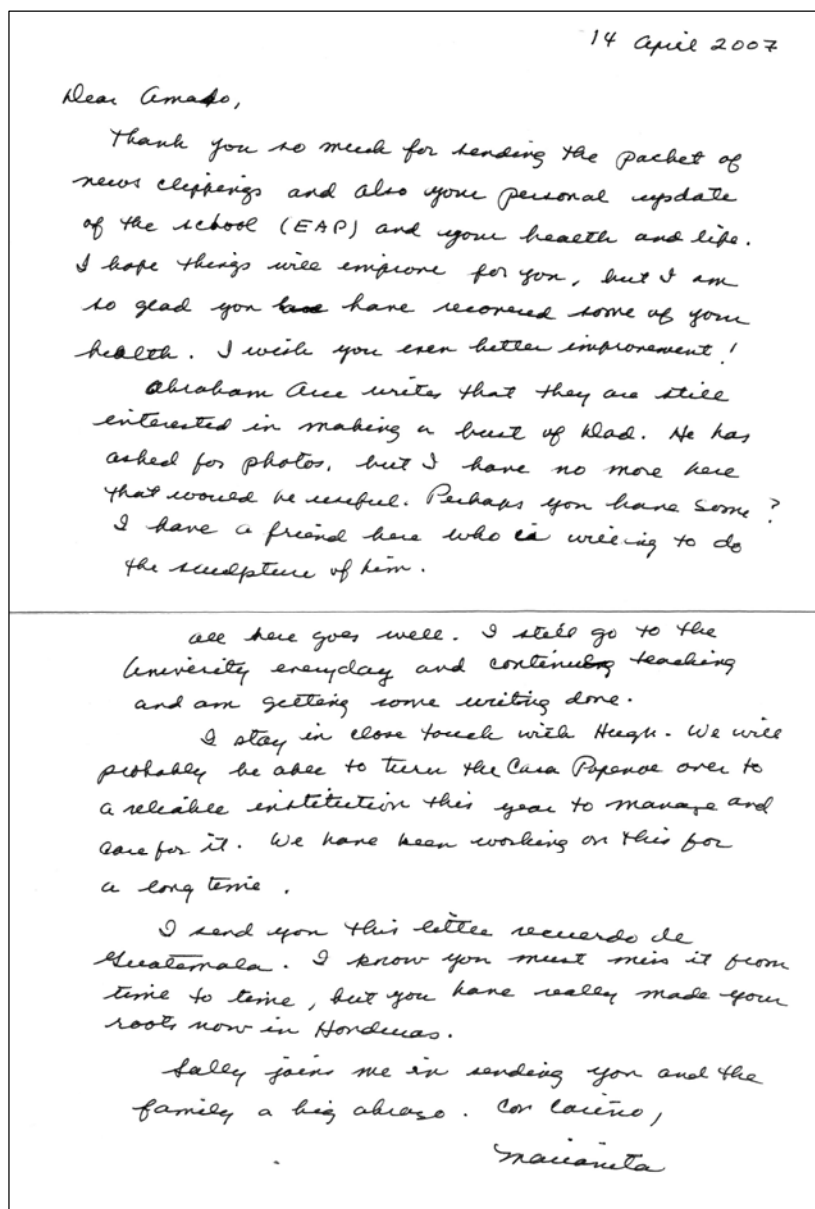 14 April 2007
Dear Amado,
Thank you so much for sending the packet of
news clippings and also your personal update
of the school (EAP) and your health and life.
I hope things will improve for you, but I am
so glad you have recovered some of your
health. I wish you even better improvement!
Abraham Arce writes that they are still
interested in making a bust of Dad. He has
asked for photos, but I have no more here
that would be useful. Perhaps you have some?
I have a friend here who is willing to do
the sculpture of him.
All here goes well. I still go to the
University everyday and continue teaching
and am getting some writing done.
I stay in close touch with Hugh. We will
probably be able to turn the Casa Popenoe over to
a reliable institution this year to manage and
care for it. We have been working on this for
a long time.
I send you this little recuerdo de
Guatemala. I know you must miss it from
time to time, but you have really made your
roots now in Honduras.
Sally joins me in sending you and the
family a big abrazo. Con cariño,
Marianita